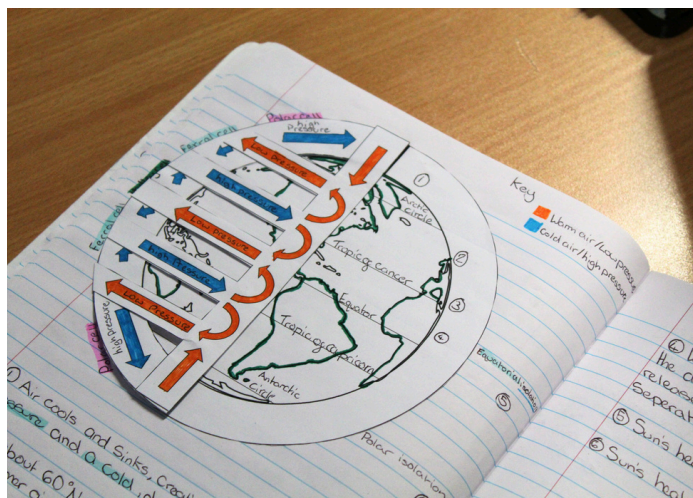 Polar cell
high
Pressure
Ferrel cell
Low Pressure
high Pressure
Low Pressure
Ferrel cell
high Pressure
Low Pressure
high pressure
①
Arctic
Circle
②
Tropic of cancer
③
Equator
Tropic of capricorn
Antarctic
Circle
Key
Warm air/Low pressure
Cold air/high pressure
⑤
Polar isolation
① Air cools and Sinks, Creat
ssure and a Cold
bout 60°N
④
the c
releas
seperat
⑤ Sun's he
⑥ Sun's heat